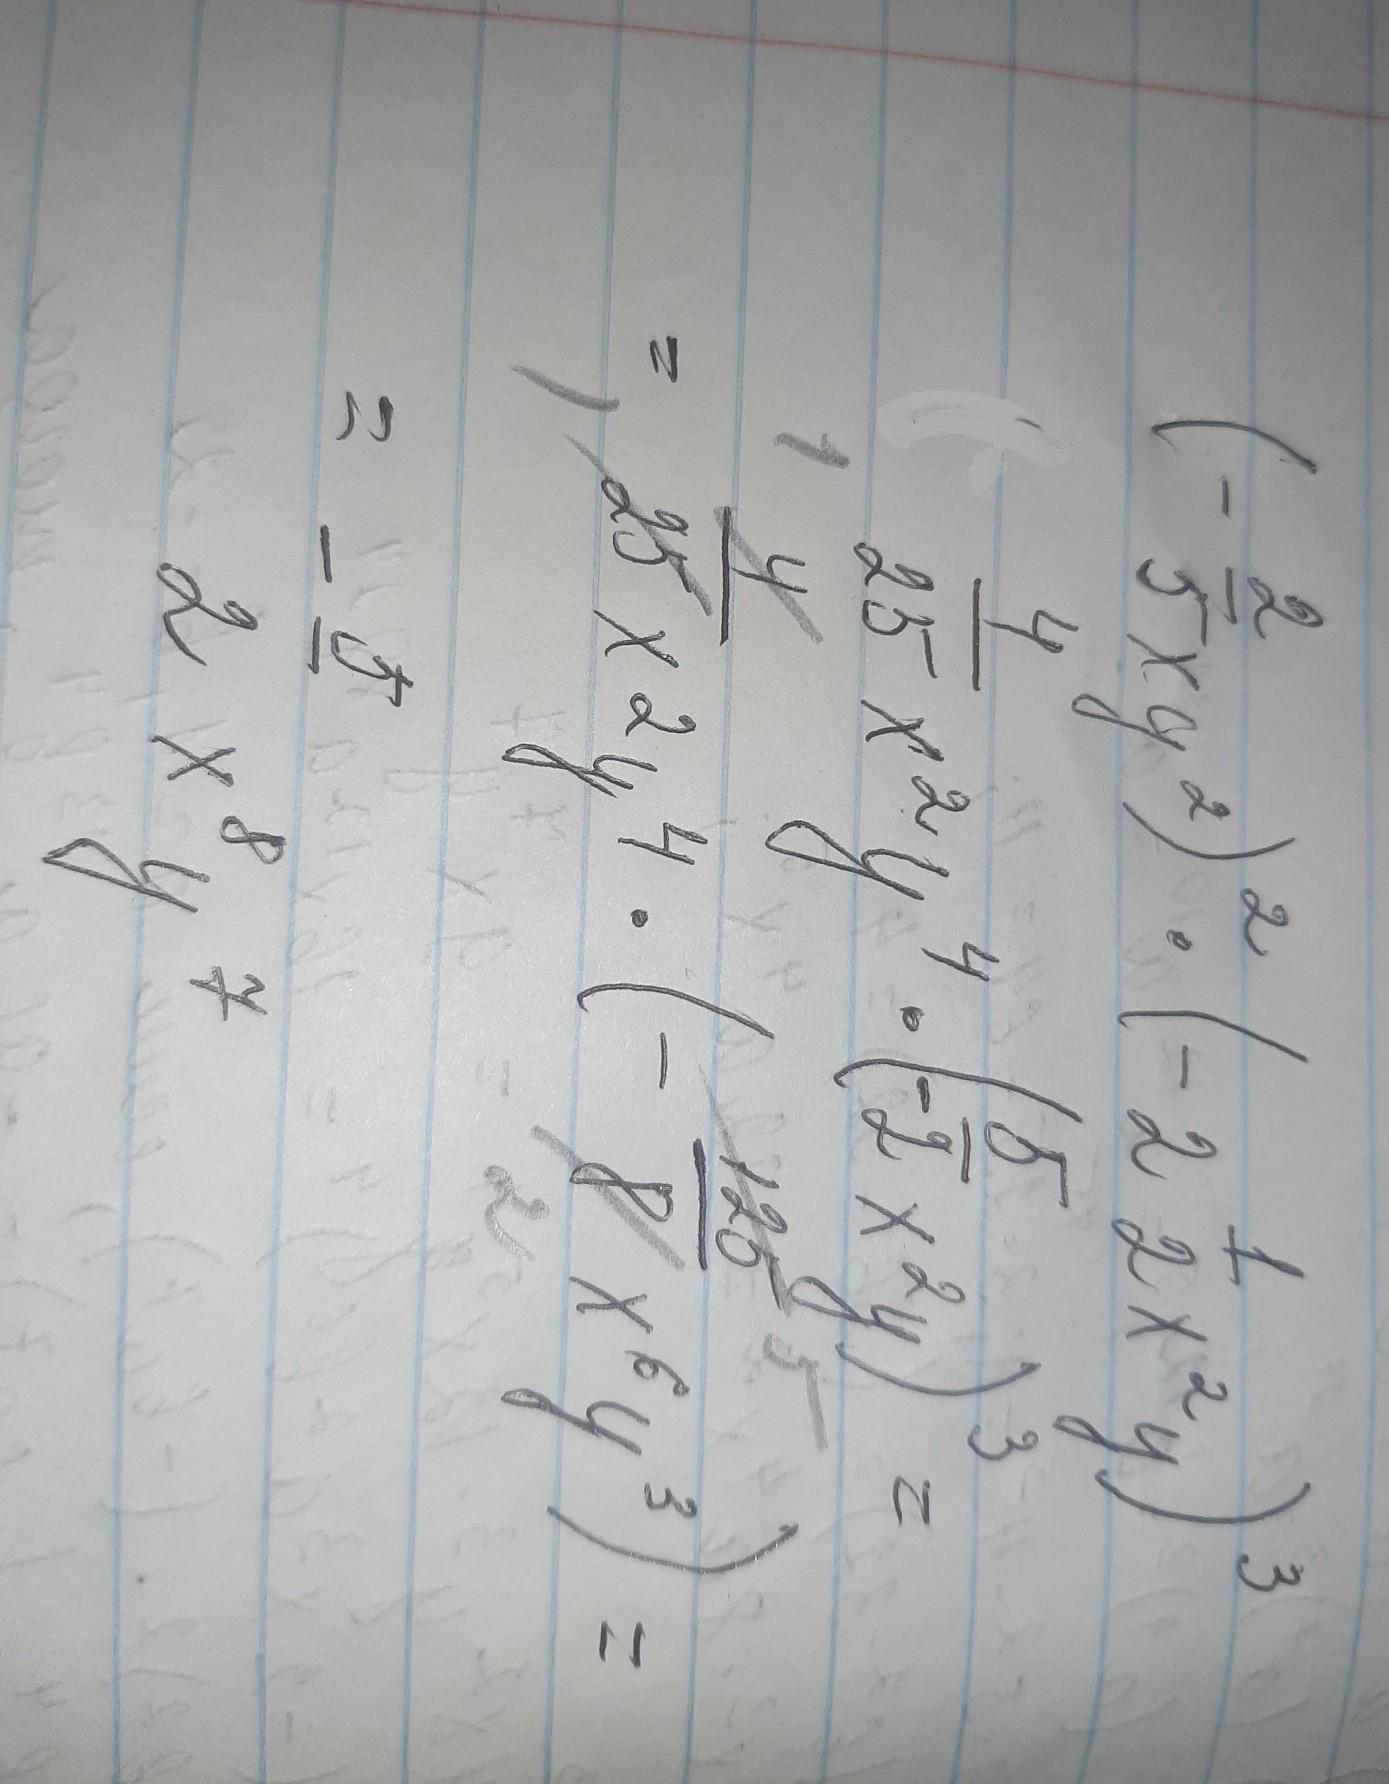 (-2/5xy²)² · (-2 1/2x²y)³
4/25x²y⁴ · (-5/2x²y)³ =
= 4/25x²y⁴ · (-125/8x⁶y³) =
= -5/2x⁸y⁷